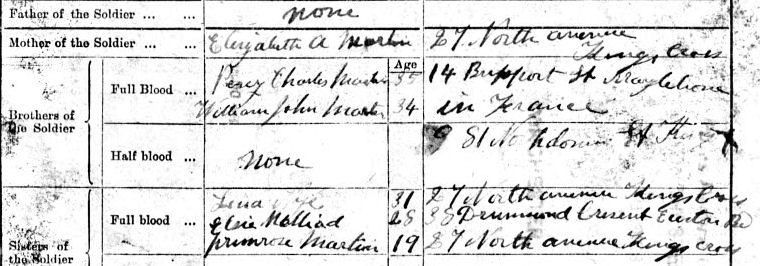 Father of the Soldier ... ... none
Mother of the Soldier ... ... Elizabeth A Martin 27 North avenue
Kings Cross
Age
Brothers of the Soldier Full Blood ... Percy Charles Martin 35 14 St Marylebone
William John Martin 34 in France
9 St
Half blood ... none
Sisters of the Soldier Full blood ... 31 27 North avenue Kings Cross
Elsie 28 38 Drummond Cresent Euston Rd
Primrose Martin 19 27 North avenue Kings cross